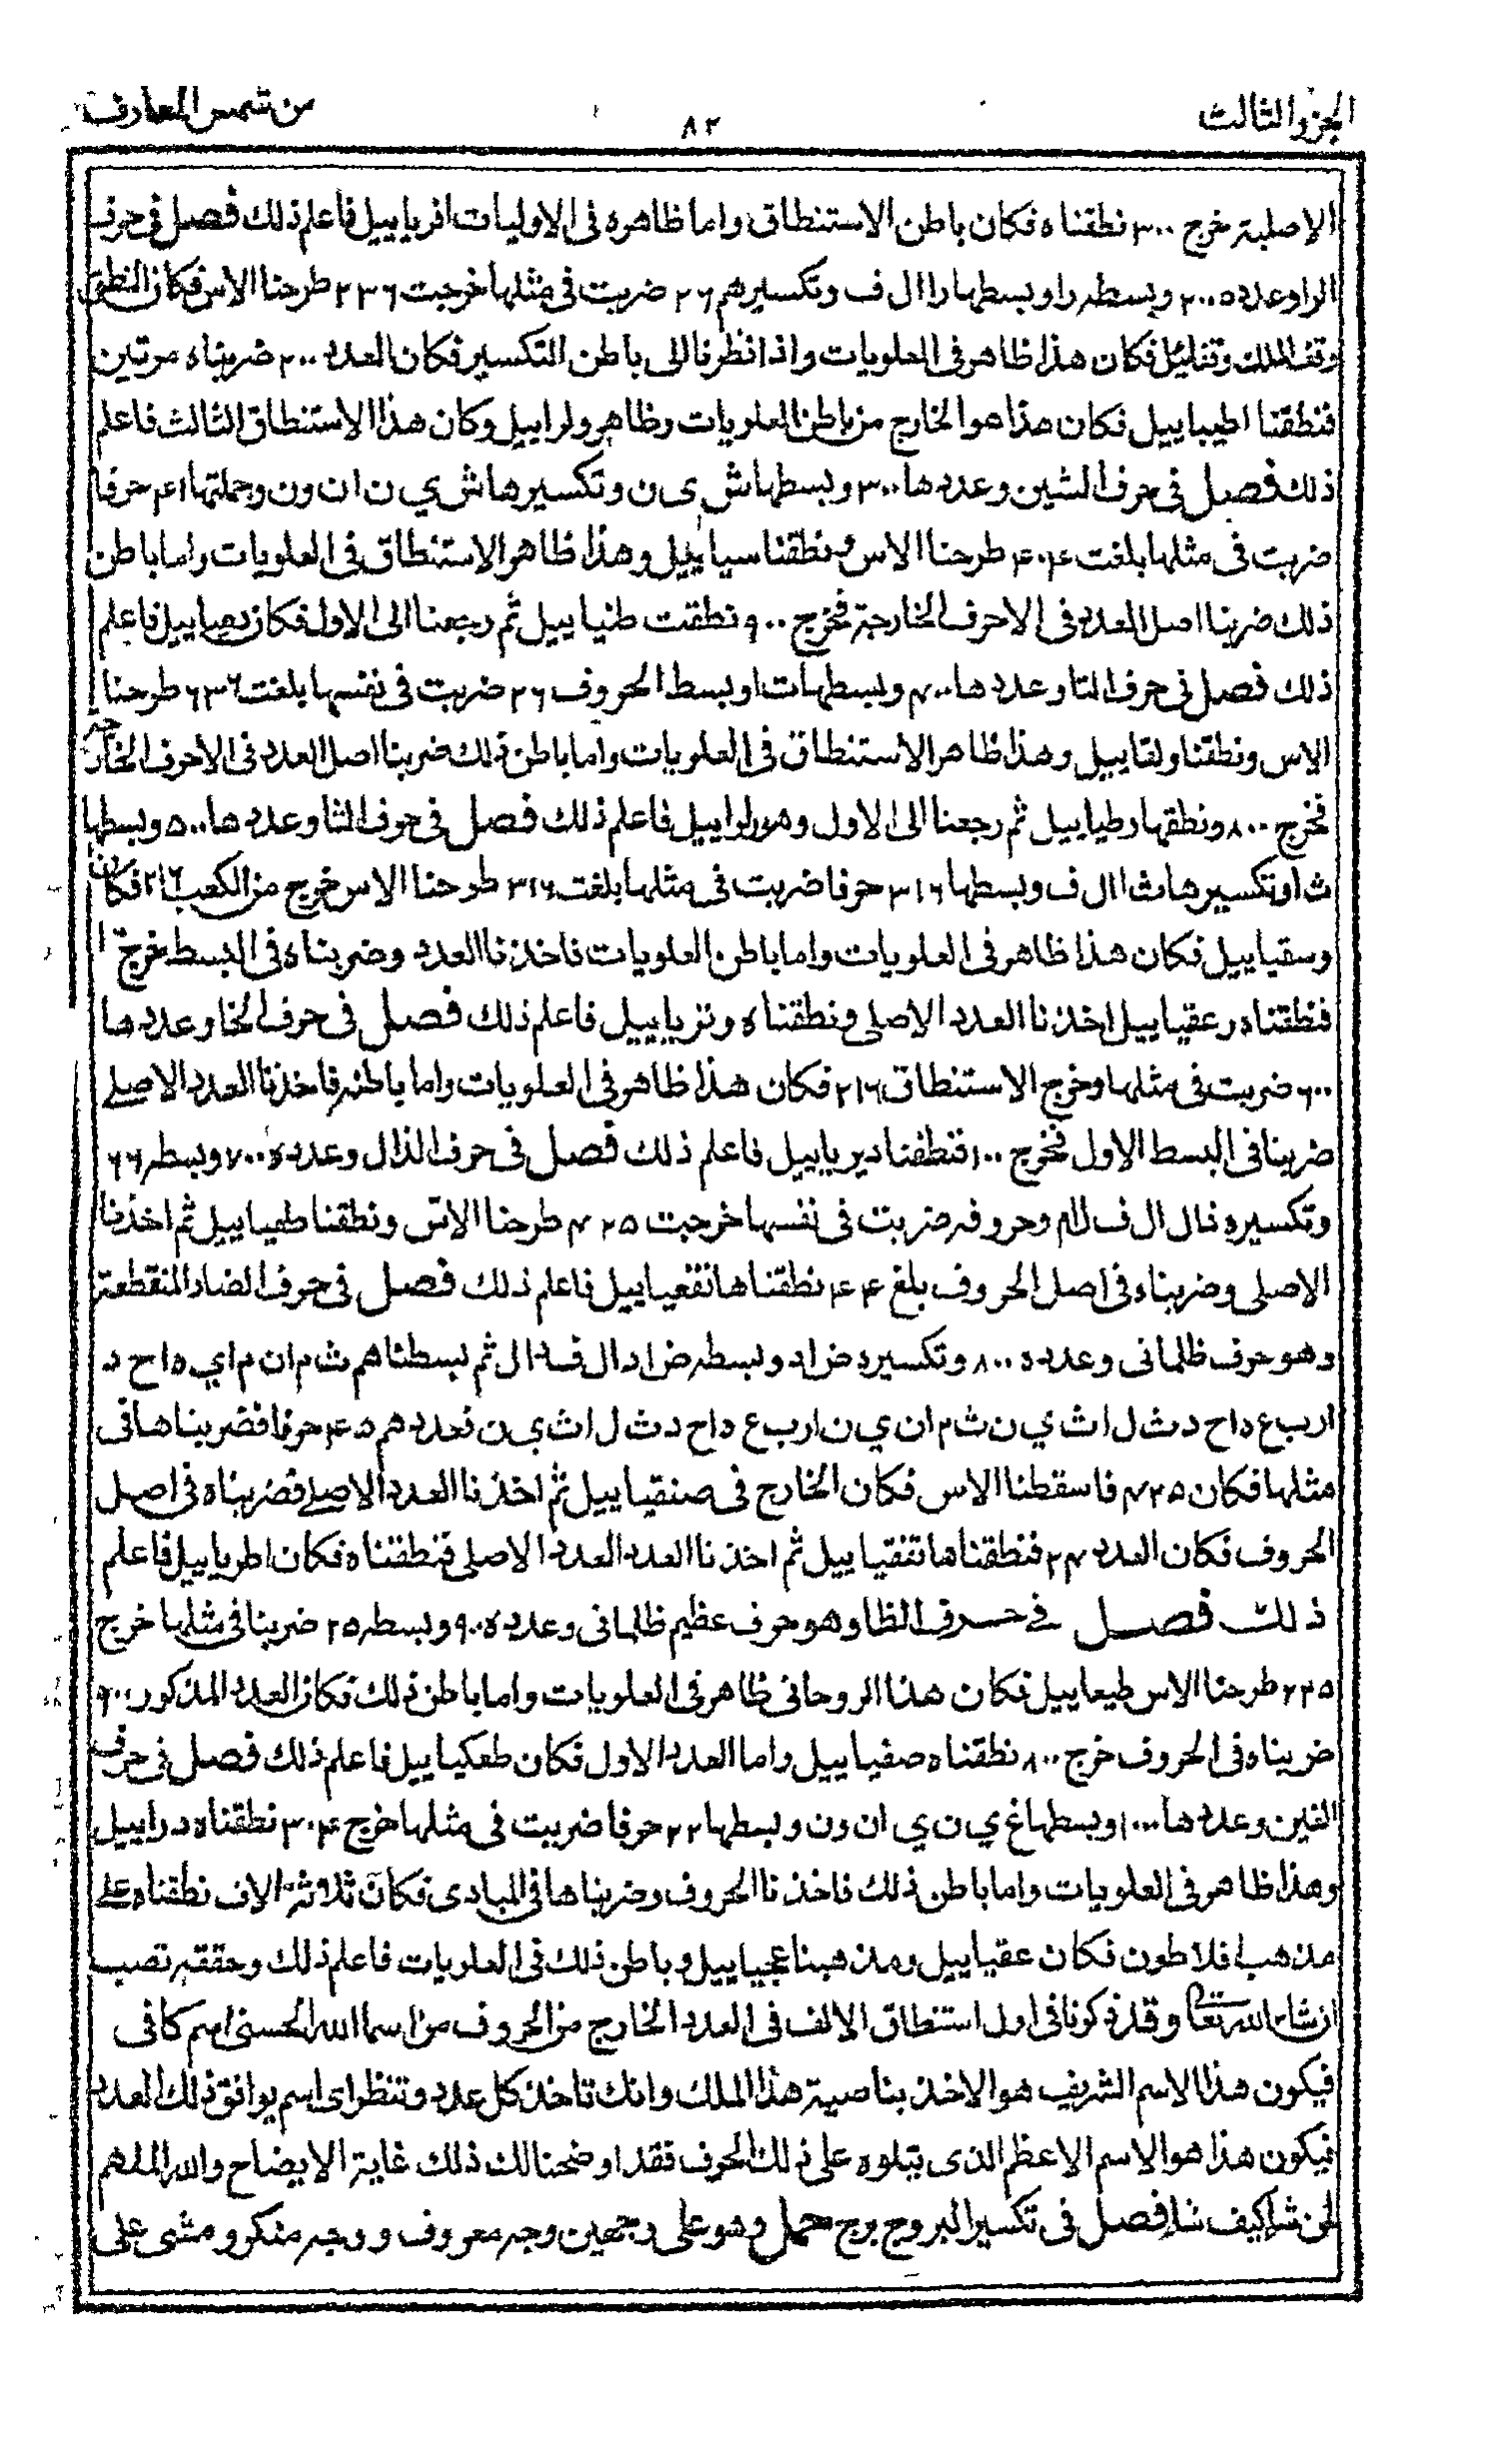 الجزء الثالث
٨٢
من شمس المعارف
الاصلية خرج ٣٠٠ نطقناه فكان باطن الاستنطاق واما ظاهره فى الاوليات افرياييل فاعلم ذلك فصل فى حرف
الرا وعدده ٢٠٠ وبسطه را وبسطها را ال ف وتكسيرهم ٢٦ ضربت فى مثلها خرجت ٢٣٦ طرحنا الاس فكان النطق
فكان هذا ظاهر فى العلويات واذا نظرنا الى باطن التكسير فكان العدد ٢٠٠ ضربناه مرتين
فنطقنا اطيباييل فكان هذا هو الخارج من باطن العلويات وظاهره لراييل وكان هذا الاستنطاق الثالث فاعلم
ذلك فصل فى حرف الشين وعددها ٣٠٠ وبسطها ش ى ن وتكسيرها ش ي ن ا ن و ن وجملتها ٤١ حرفا
ضربت فى مثلها بلغت ٤٠٤ طرحنا الاس ونطقنا سياييل وهذا ظاهر الاستنطاق فى العلويات واما باطن
ذلك ضربنا اصل العدد فى الاحرف الخارجة فخرج ٩٠٠ ونطقت طنياييل ثم رجعنا الى الاول فكان فاعلم
ذلك فصل فى حرف التا وعددها ٤٠٠ وبسطها ت ا وبسط الحروف ٢٦ ضربت فى نفسها بلغت ٦٣٦ طرحنا
الاس ونطقنا ولقاييل وهذا ظاهر الاستنطاق فى العلويات واما باطن ذلك ضربنا اصل العدد فى الاحرف الخارجة
فخرج ٨٠٠ ونطقها رطياييل ثم رجعنا الى الاول وهو لراييل فاعلم ذلك فصل فى حرف الثا وعددها ٥٠٠ وبسطها
ث ا وتكسيرها ث ا ال ف وبسطها ٣١٦ حرفا ضربت فى مثلها بلغت ٣١٦ طرحنا الاس خرج من الكعب ٢١٦ فكان
وسقياييل فكان هذا ظاهر فى العلويات واما باطن العلويات فاخذنا العدد وضربناه فى البسط خرج ا
فنطقناه رعقياييل اخذنا العدد الاصلى ونطقناه وتزياييل فاعلم ذلك فصل فى حرف الخا وعددها
٦٠٠ ضربت فى مثلها وخرج الاستنطاق ٢١٦ فكان هذا ظاهر فى العلويات واما باطنه فاخذنا العدد الاصلى
ضربنا فى البسط الاول فخرج ١٠٠ فنطقنا ديرياييل فاعلم ذلك فصل فى حرف الذال وعدده ٧٠٠ وبسطه ٦٦
وتكسيره ذال ال ف لام وحروفه ضربت فى نفسها خرجت ٤٢٥ طرحنا الاس ونطقنا طهياييل ثم اخذنا
الاصلى وضربناه فى اصل الحروف بلغ ٤٤ نطقناها نقعياييل فاعلم ذلك فصل فى حرف الضاد المنقطعة
وهو حرف ظلمانى وعدده ٨٠٠ وتكسيره ض ا د وبسطه ض ا د ال ف د ال ثم بسطناهم ث م ا ن م ا ي ه ا ح د
ا ر ب ع د ا ح د ث ل ا ث ي ن ث م ا ن ي ن ا ر ب ع د ا ح د ث ل ا ث ي ن فعددهم ٤٥ حرفا فضربناها فى
مثلها فكان ٤٢٥ فاسقطنا الاس فكان الخارج فى صنقياييل ثم اخذنا العدد الاصلى فضربناه فى اصل
الحروف فكان العدد ٢٤ فنطقناها تفقياييل ثم اخذنا العدد العدد الاصلى فنطقناه فكان اطرياييل فاعلم
ذلك فصل فى حرف الظا وهو حرف عظيم ظلمانى وعدده ٩٠٠ وبسطه ٢٥ ضربنا فى مثلها خرج
٢٣٥ طرحنا الاس طيعاييل فكان هذا الروحانى ظاهر فى العلويات واما باطن ذلك فكان العدد المذكور ٩٠٠
ضربناه فى الحروف خرج ٨٠٠ نطقناه صفياييل واما العدد الاول فكان طعكياييل فاعلم ذلك فصل فى حرف
الغين وعددها ١٠٠٠ وبسطها غ ي ن ي ا ن و ن وبسطها ٢٢ حرفا ضربت فى مثلها خرج ٣٠٤ نطقناه دراييل
وهذا ظاهر فى العلويات واما باطن ذلك فاخذنا الحروف وضربناها فى المبادى فكان ثلاثة الاف نطقناه على
مذهب افلاطون فكان عقياييل ومذهبنا عجياييل وباطن ذلك فى العلويات فاعلم ذلك وحققه تصب
ان شاء الله تعالى وقد ذكرنا فى اول استنطاق الالف فى العدد الخارج من الحروف من اسما الله الحسنى اسم كافى
فيكون هذا الاسم الشريف هو الاخذ بناصية هذا الملك وانك تاخذ كل عدد وتنظر اى اسم يوافق ذلك العدد
فيكون هذا هو الاسم الاعظم الذى يتلوه على ذلك الحرف فقد اوضحنا لك ذلك غاية الايضاح والله الملهم
لمن شا كيف شا فصل فى تكسير البروج برج حمل وهو على وجهين وجه معروف ووجه منكر ومشى على